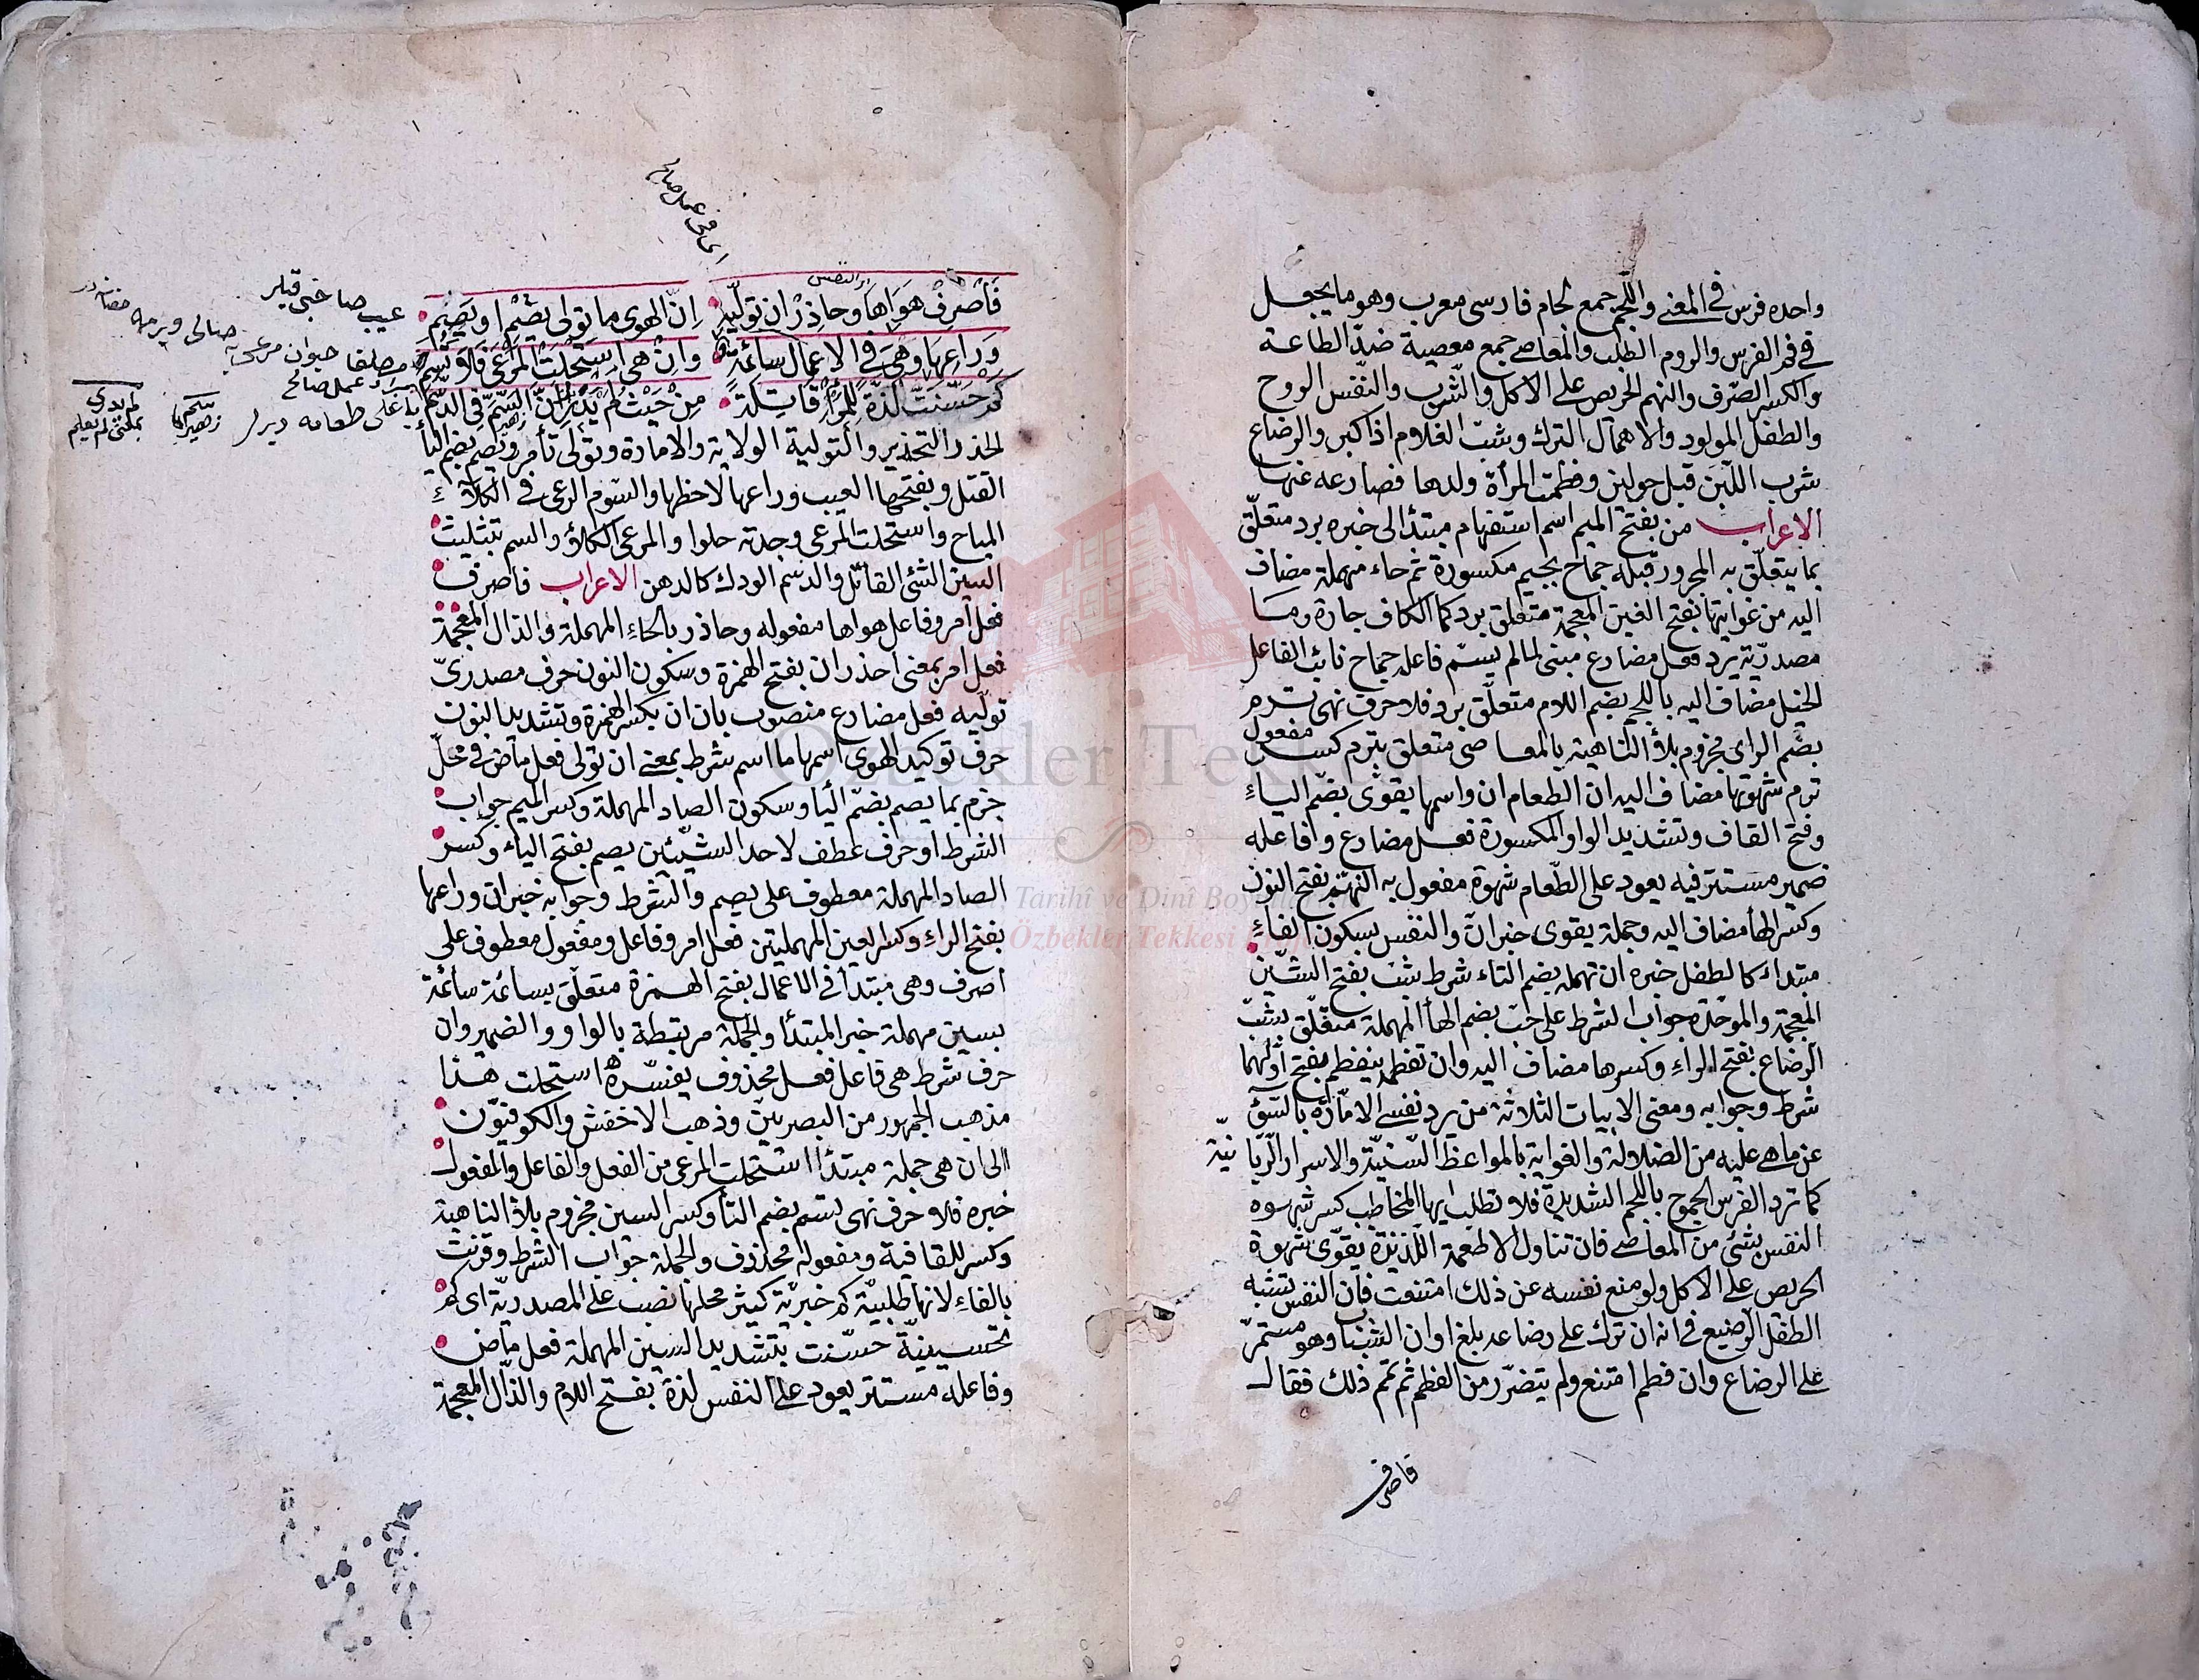 واحده فرس في المعنى واللجم جمع لجام فارسى معرب وهو ما يجعل
في فم الفرس والروم الطلب والمعاصى جمع معصية ضدّ الطاعة
والكسر الصّرف والنهم الحريص على الاكل والشرب والنفس الروح
والطفل المولود والاهمال الترك وشبّ الغلام اذا كبر والرضاع
شرب اللبن قبل حولين وفطمت المرأة ولدها فصارعه عنها
الاعراب من بفتح الميم اسم استفهام مبتدأ لى خبره برد متعلّق
بما يتعلّق به المجرور قبله جماح بجيم مكسورة ثم حاء مهملة مضاف
اليه من غوايتها بفتح الغين المعجمة متعلق برد كما الكاف جارة وما
مصدرية يرد فعل مضارع مبنى لما لم يسمّ فاعله جماح نائب الفاعل
الخيل مضاف اليه باللجم بضم اللام متعلّق برد فلا حرف نهى ترم
بضم الراى مجزوم بلا الناهية بالمعاصى متعلق بترم كسر مفعول
ترم شهوتها مضاف اليه ان الطعام ان واسمها يقوّى بضم الياء
وفتح القاف وتشديد الواو المكسورة فعل مضارع وفاعله
ضمير مستتر فيه يعود على الطّعام شهوة مفعول به النهم بفتح النون
وكسر الهاء مضاف اليه وجملة يقوى خبر ان والنفس بسكون الفاء
مبتداء كالطفل خبره ان تهمله بضم التاء شرط شبّ بفتح الشّين
المعجمة والموحّدة جواب الشرط على حبّ بضم الحاء المهملة متعلّق بشبّ
الرضاع بفتح الراء وكسرها مضاف اليه وان تفطمه ينفطم بفتح اولهما
شرط وجوابه ومعنى الابيات الثلاثة من يرد نفسى الامّارة بالسّؤ
عن ما هى عليه من الضلالة والغواية بالمواعظ السّنيّة والاسرار الرّبانيّة
كما ترد الفرس الجموح باللجم الشديدة فلا تطلب ايها المخاطب كسر شهوة
النفس بشئ من المعاصى فان تناول الاطعمة اللّذيذة يقوّى شهوة
الحريص على الاكل ولو منع نفسه عن ذلك امتنعت فان النفس تشبه
الطفل الرضيع في انه ان ترك على رضاعه بلغ اوان الشباب وهو مستمرّ
على الرضاع وان فطم امتنع ولم يتضرّر من الفطم ثم تمّم ذلك فقال
فاصرف
اى في عمل صالح
اى النفس
فَاصْرِفْ هَوَاهَا وحاذِرْ ان تولّيه إنّ الهوى ما تولى يُصْمِ او يَصِمِ
وَرَاعِهَا وَهْيَ في الاعمال سائمة وانْ هى استحلت المرعى فلا تُسِمِ
كم حسّنت لذّة للمرء قاتلة من حيث لم يَدْرِ انّ السّمّ في الدّسم
الحذر التحذير والتولية الولاية والامارة وتولى تأمر ويصم بضم اليأ
القتل وبفتحها العيب وراعها لاحظها والسّوم الرعى في الكلاء
المباح واستحلت المرعى وجدته حلوا والمرعى الكلأ والسم بتثليث
السين الشئ القاتل والدسم الودك كالدهن الاعراب فاصرف
فعل امر وفاعل هواها مفعوله وحاذر بالحاء المهملة والذال المعجمة
فعل امر بمعنى احذر ان بفتح الهمزة وسكون النون حرف مصدرىّ
تولّيه فعل مضارع منصوب بان ان بكسر الهمزة وتشديد النون
حرف توكيد الهوى اسمها ما اسم شرط بمعنى ان تولى فعل ماض في محلّ
جزم بما يصم بضمّ اليأ وسكون الصاد المهملة وكسر الميم جواب
الشرط او حرف عطف لاحد الشيئين يصم بفتح الياء وكسر
الصاد المهملة معطوف على يصم والشرط وجوابه خبر ان وراعها
بفتح الراء وكسر العين المهملتين فعل امر وفاعل ومفعول معطوف على
اصرف وهى مبتدأ في الاعمال بفتح الهمزة متعلّق بسائمة سائمة
بسين مهملة خبر المبتدأ والجملة مرتبطة بالواو والضمير وان
حرف شرط هى فاعل فعل محذوف يفسّره استحلت هذا
مذهب الجمهور من البصريين وذهب الاخفش والكوفيّون
الى ان هى جملة مبتدأ استحلت المرعى من الفعل والفاعل والمفعول
خبره فلا حرف نهى تسم بضم التأ وكسر السين مجزوم بلا الناهية
وكسر للقافية ومفعوله محذوف والجملة جواب الشرط وقرنت
بالفاء لانها طلبيّة كم خبريّة كثير محلها نصب على المصدريّة اى كم
تحسينيّة حسّنت بتشديد السين المهملة فعل ماض
وفاعله مستتر يعود على النفس لذة بفتح اللام والذّال المعجمة
عيب صاحبى قيلر
لم يدرى
بمعنى لم يعلم